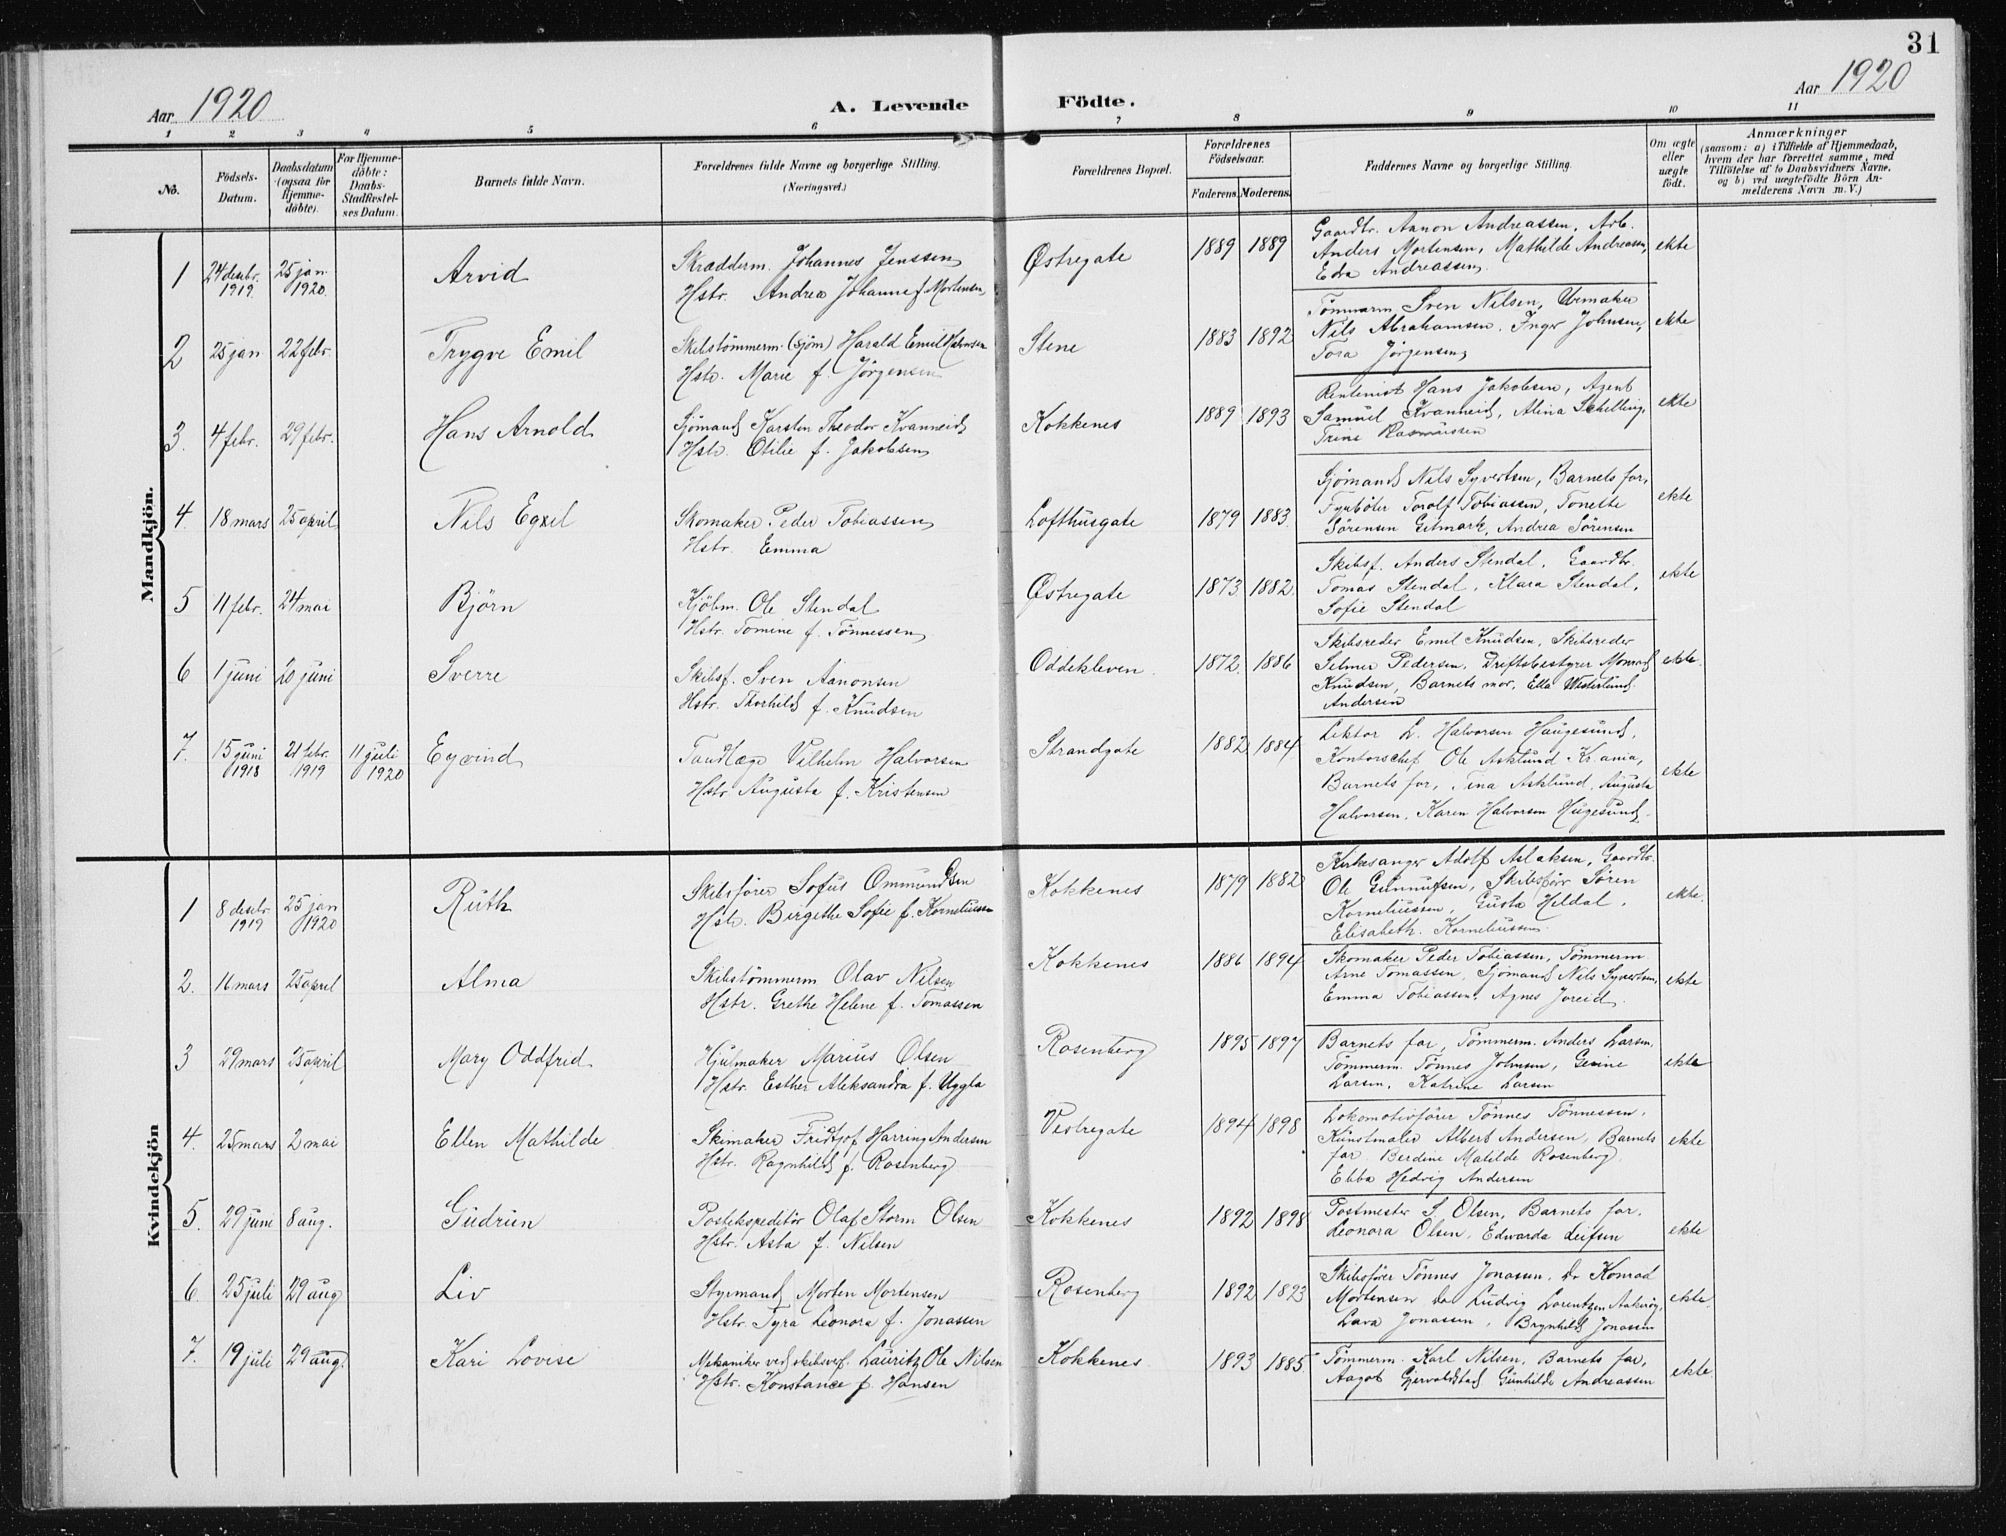 31
Aar 1920
A. Levende Födte.
Aar 1920
1 2 3 4 5 6 7 8 9 10 11
No.
Födsels-Datum.
Daabsdatum (ogsaa for Hjemme-döbte).
For Hjemme-döbte: Daabs-Stadfestel-ses Datum.
Barnets fulde Navn.
Forældrenes fulde Navne og borgerlige Stilling.
(Næringsvei.)
Forældrenes Bopæl.
Forældrenes Födselsaar.
Faderens. Moderens.
Faddernes Navne og borgerlige Stilling.
Om ægte eller uægte födt.
Anmærkninger
(saasom: a) i Tilfælde af Hjemmedaab, hvem der har forrettet samme, med Tilföielse af to Daabsvidners Navne, og b) ved uægtefödte Börn An-melderens Navn m. V.)
Mandkjön.
1 24 desbr. 1919. 25 jan 1920. Arvid
Skrædderm. Johannes Jenssen
Hstr. Andrea Johanne f. Mortensen
Østregate 1889 1889
Gaardbr. Aanon Andreassen, Arb.
Anders Mortensen, Mathilde Andreassen,
Edva Andreassen.
ekte
2 25 jan 22 febr. Trygve Emil
Skibstömmerm. (sjöm) Harald Emil Halvorsen
Hstr. Marie f. Jörgensen
Stene 1883 1892
Tömmerm. Sven Nilsen, Urmaker
Nils Abrahamsen, Inger Johnsen,
Tora Jörgensen
ekte
3. 4 febr. 29 febr. Hans Arnold
Sjömand Karsten Theodor Kvanneid
Hstr. Otilie f. Jakobsen
Kokkenes 1889 1893
Rentenist Hans Jakobsen, Agent
Samuel Kvanneid, Alina Schelling,
Trine Rasmussen
ekte
4. 18 mars 25 april Nils Egxil
Skomaker Peder Tobiassen
Hstr. Emma
Lofthusgate 1879 1883.
Sjömand Nils Syvertsen, Barnets far,
Fyrböter Torolf Tobiassen, Tonette
Sörensen Gitmark, Andrea Sörensen
ekte
5 11 febr. 24 mai Björn
Kjöbm. Ole Stendal
Hstr. Tomine f. Tönnessen
Østregate 1873 1882.
Skibsf. Anders Stendal, Gaardbr.
Tomas Stendal, Klara Stendal,
Sofie Stendal
ekte
6 1 juni 20 juni Sverre
Skibsf. Sven Aanonsen
Hstr. Thorhild f. Knudsen
Oddekleven 1872. 1886
Skibsreder Emil Knudsen, Skibsreder
Selmer Pedersen, Driftsbestyrer Monrad
Knudsen, Barnets mor, Ella Westerlund
Andersen
ekte.
7. 15 juni 1918 21 febr. 1919 11 juli 1920 Eyvind
Tandlæge Vilhelm Halvorsen
Hstr. Augusta f. Kristensen
Strandgate 1882 1884
Lektor L. Halvorsen Haugesund,
Kontorschef Ole Asklund Kr.ania,
Barnets far, Tina Asklund, Augusta
Halvorsen, Karen Halvorsen Hugesund.
ekte
Kvindekjön
1 8 desbr 1919 25 jan 1920 Ruth
Skibsförer Sofus Ommundsen
Hstr. Birgithe Sofie f. Korneliussen
Kokkenes 1879 1882
Kirkesanger Adolf Aslaksen, Gaardbr.
Ole Gunnufsen, Skibsförer Sören
Korneliussen, Gusta Hildal,
Elisabeth Korneliussen.
ekte.
2. 16 mars 25 april Alma
Skibstömmerm Olav Nilsen
Hstr. Grethe Helene f. Tomassen
Kokkenes 1886 1894
Skomaker Peder Tobiassen, Tömmerm
Arne Tomassen, Sjömand Nils Syvertsen,
Emma Tobiassen, Agnes Joreid.
ekte
3 29 mars 25 april Mary Oddfrid
Hjulmaker Marius Olsen
Hstr. Esther Aleksandra f. Uggla
Rosenberg 1895 1897
Barnets far, Tömmerm. Anders Larsen,
Tömmerm. Tönnes Johnsen, Gevine
Larsen, Katrine Larsen
ekte
4. 25 mars 2 mai Ellen Mathilde
Skimaker Fridtjof Harring Andersen
Hstr. Ragnhild f. Rosenberg
Vestregate 1894 1898
Lokomotivförer Tönnes Tönnessen,
Kunstmaler Albert Andersen, Barnets
far Berdine Matilde Rosenberg,
Ebba Hedvig Andersen
ekte
5. 29 juni 8 aug. Gudrun
Postekspeditör Olaf Storm Olsen
Hstr. Asta f. Nilsen
Kokkenes 1892 1898
Postmester S. Olsen, Barnets far,
Leonora Olsen, Edwarda Leifsen
ekte
6. 25 juli 29 aug Liv
Styrmand Morten Mortensen
Hstr. Tyra Leonora f. Jonassen
Rosenberg 1892 1893
Skibsförer Tönnes Jonassen, do Konrad
Mortensen do Ludvig Lorentzen Aakeröy,
Lava Jonassen, Brynhild Jonassen
ekte.
7. 19 juli 29 aug. Kari Lovise
Mekaniker ved skibsverf. Lauritz Ole Nilsen
Hstr. Konstance f. Hansen
Kokkenes. 1893 1885.
Tömmerm. Karl Nilsen, Barnets far,
Aagot Gjervoldstad Gunhilde Andreassen
ekte.